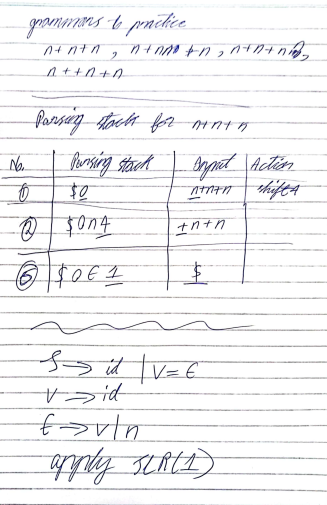 grammars to practice
n+n+n , n+nn +n , n+n+n
n++n+n
Parsing stack for n+n+n
No. Parsing stack Input Action
① $0 n+n+n shift 4
② $0n4 +n+n
⑤ $0E1 $
S → id | V = E
V → id
E → V | n
apply SLR(1)